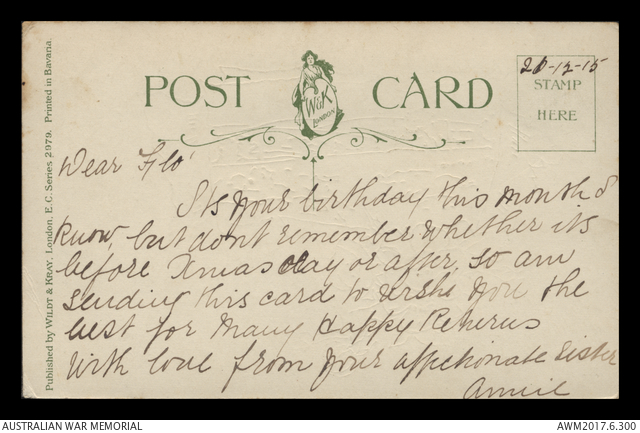 POST CARD
W&K
LONDON
20-12-15
STAMP
HERE
Published by WILDT & KRAY, London, E.C. Series 2979. Printed in Bavaria.
Dear Flo'
Its your birthday this month I
know, but dont remember whether its
before Xmas day or after, so am
sending this card to wish you the
best for Many Happy Returns
With love from your affectionate sister
Annie
AUSTRALIAN WAR MEMORIAL
AWM2017.6.300